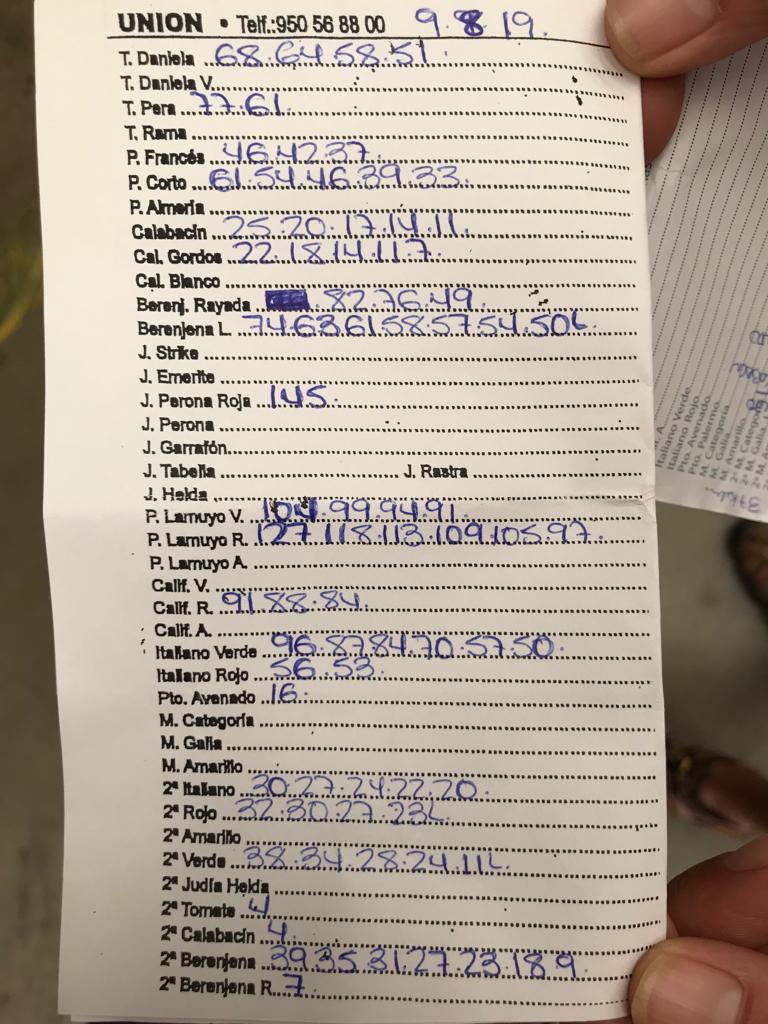 UNION • Telf.:950 56 88 00 9.8.19.
T. Daniela 68.64.58.51.
T. Daniela V.
T. Pera 77.61.
T. Rama
P. Francés 46.42.37.
P. Corto 61.54.46.39.33.
P. Almería
Calabacín 25.20.17.14.11.
Cal. Gordos 22.18.14.11.7.
Cal. Blanco
Berenj. Rayada 82.76.49.
Berenjena L. 74.63.61.58.57.54.50L.
J. Strike
J. Emerite
J. Perona Roja 145.
J. Perona
J. Garrafón
J. Tabella J. Rastra
J. Helda
P. Lamuyo V. 104.99.94.91.
P. Lamuyo R. 127.118.113.109.105.97.
P. Lamuyo A.
Calif. V.
Calif. R. 91.88.84.
Calif. A.
Italiano Verde 96.87.84.70.57.50.
Italiano Rojo 56.53.
Pto. Avenado 16.
M. Categoría
M. Galia
M. Amarillo
2ª Italiano 30.27.24.22.20.
2ª Rojo 32.30.27.23L
2ª Amarillo
2ª Verde 38.34.28.24.11L.
2ª Judía Helda
2ª Tomate 4
2ª Calabacín 4.
2ª Berenjena 39.35.31.27.23.18.9.
2ª Berenjena R. 7.
Italiano Verde
Italiano Rojo
Pto. Avenado
Pto. Palermo
M. Categoría
M. Galia
M. Amarillo